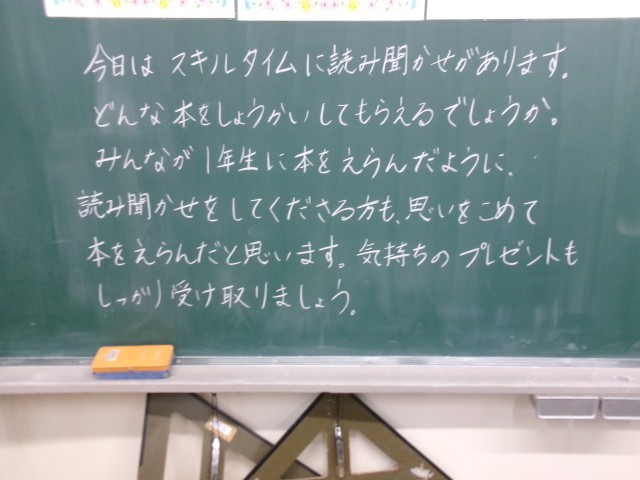 今日は スキルタイムに読み聞かせがあります。
どんな本をしょうかいしてもらえるでしょうか。
みんなが1年生に本をえらんだように、
読み聞かせをしてくださる方も、思いをこめて
本をえらんだと思います。気持ちのプレゼントも
しっかり受け取りましょう。